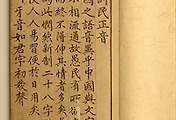 訓民正音
國之語音異乎中國與文
不相流通故愚民有所欲
而終不得伸其情者多矣
爲此憫然新制二十八字
使人人易習便於日用矣
牙音如君字初發聲